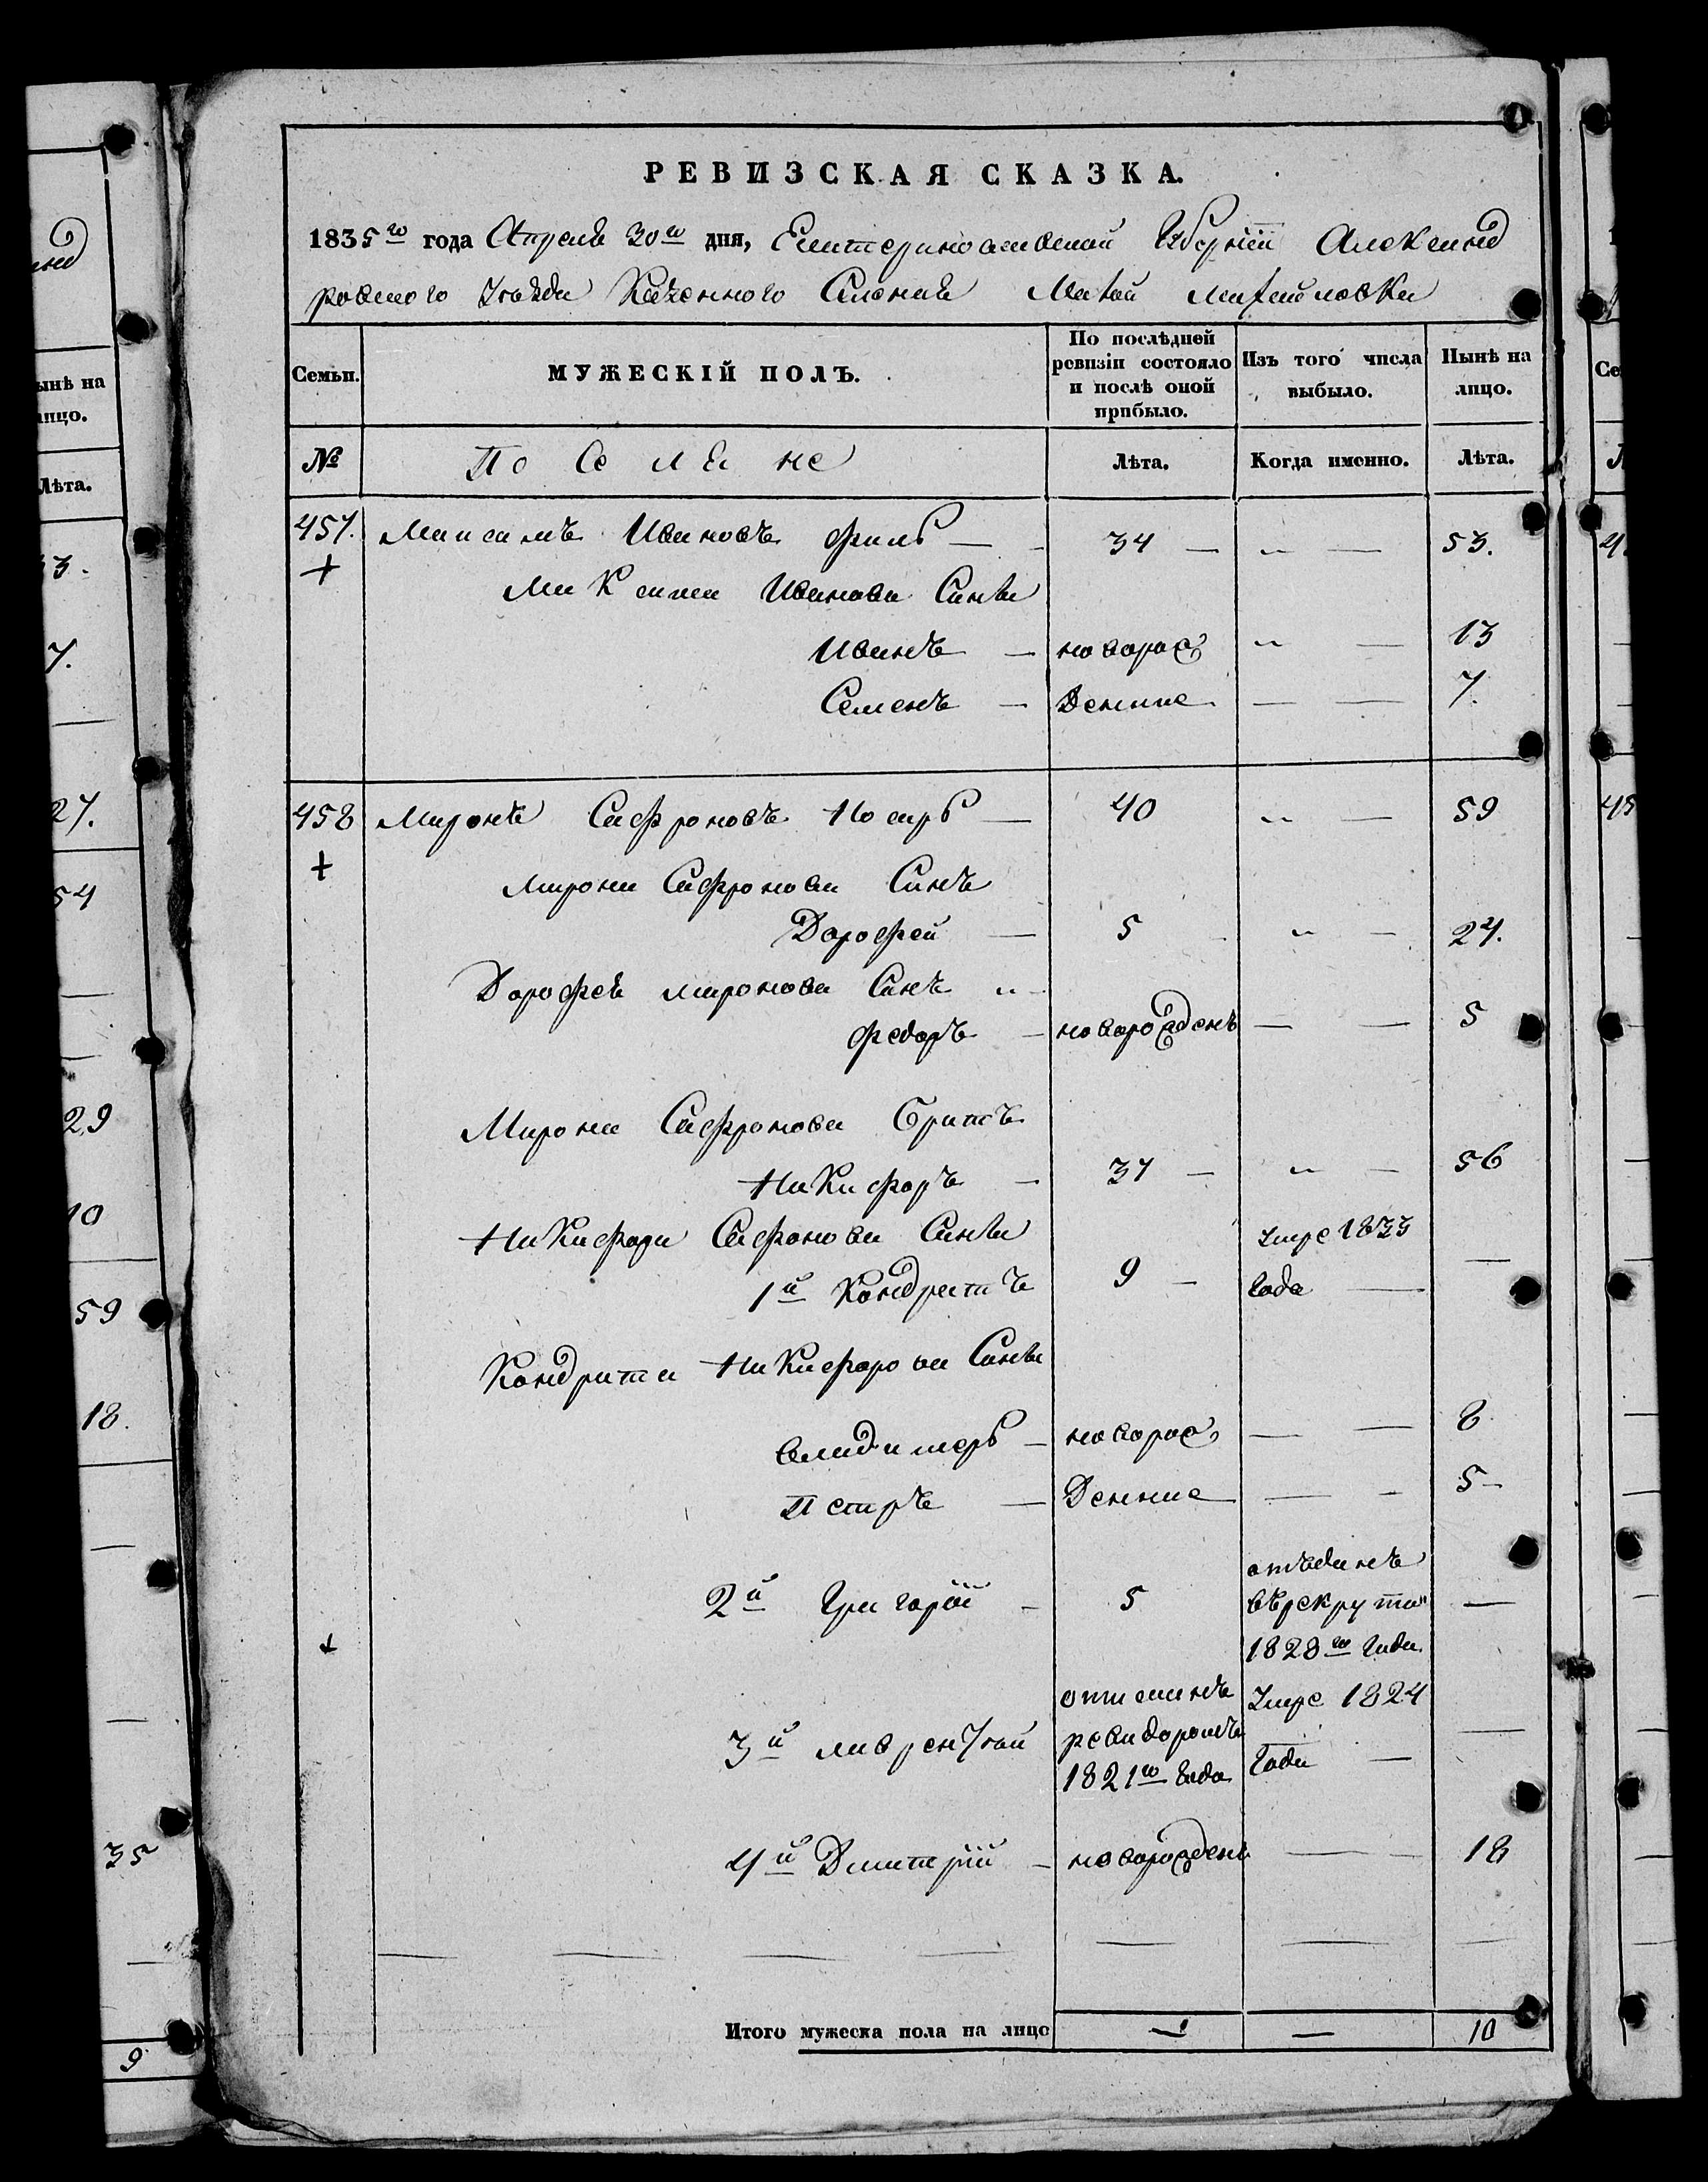 РЕВИЗСКАЯ СКАЗКА.
1835го года Апреля 30го дня, Екатеринославской Губернїи Александ
ровского Уѣзда Казенного Селения Малой Михайловки
Семьи. МУЖЕСКІЙ ПОЛЪ. По послѣдней ревизіи состояло и послѣ оной прибыло. Изъ того числа выбыло. Нынѣ на лицо.
№ Поселяне Лѣта. Когда именно. Лѣта.
457. Максимъ Ивановъ Филь — 34 — „ — 53.
+ Максима Иванова Сын
Иванъ — новорож „ — 13
Семенъ — Денные — — 7.
458 Миронъ Сафроновъ Носарь — 40 „ — 59
+ Мирона Сафронова Синъ
Дорофей — 5 „ — 24.
Дорофея Миронова Синъ „
Федоръ — новорожденъ — — 5
Мирона Сафронова Братъ
Никифоръ — 37 — „ — 56
Никифора Сафонова Син
1й Кондратъ 9 — Умре 1833 Года — —
Кондрата Никифорова Син
Владимеръ — новорож — — 8
Петръ — Денные — — 5 —
2й Григорїй — 5 отъданъ върекруты 1828го Года. —
3й Лаврентїй 1821го Года Умре 1824 Года — —
4й Дмитрїй — новорожденъ — — 18
Итого мужеска пола на лицо — — 10
ынѣ на
лицо.
Лѣта.
7.
27.
54
29
10
59
18.
35
9